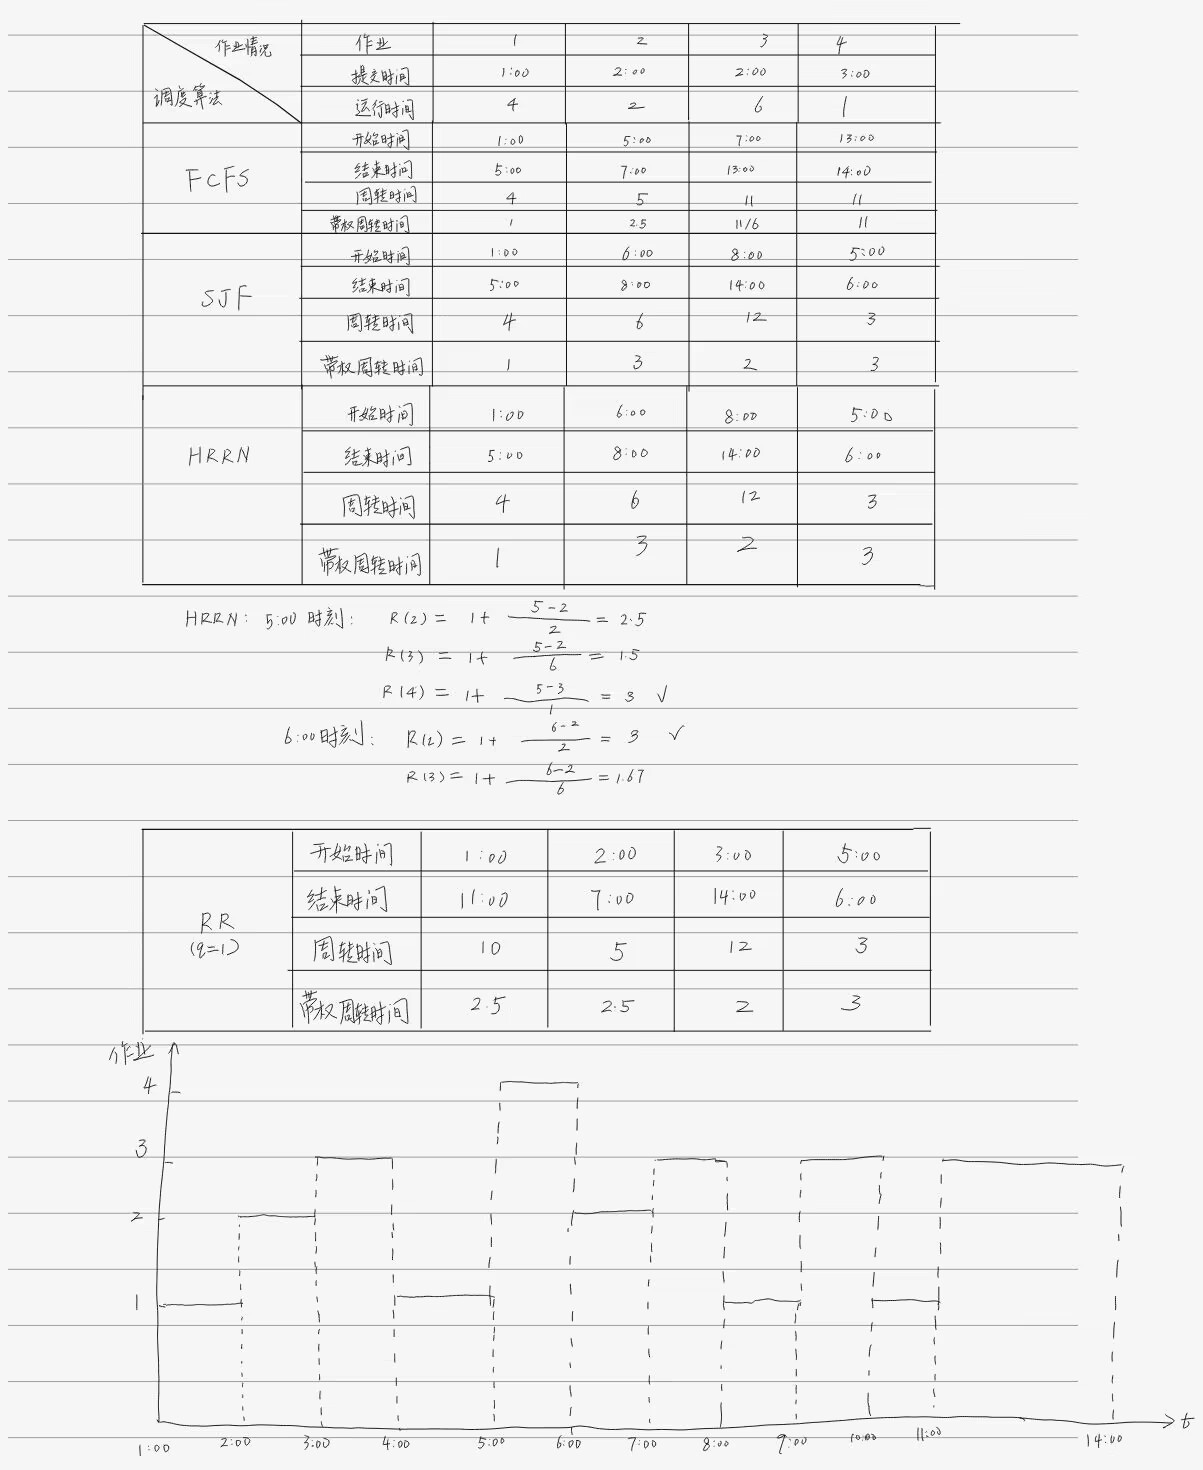 作业情况 作业 1 2 3 4
提交时间 1:00 2:00 2:00 3:00
调度算法 运行时间 4 2 6 1
开始时间 1:00 5:00 7:00 13:00
FCFS 结束时间 5:00 7:00 13:00 14:00
周转时间 4 5 11 11
带权周转时间 1 2.5 11/6 11
开始时间 1:00 6:00 8:00 5:00
SJF 结束时间 5:00 8:00 14:00 6:00
周转时间 4 6 12 3
带权周转时间 1 3 2 3
开始时间 1:00 6:00 8:00 5:00
HRRN 结束时间 5:00 8:00 14:00 6:00
周转时间 4 6 12 3
带权周转时间 1 3 2 3
HRRN: 5:00时刻: R(2) = 1+ (5-2)/2 = 2.5
R(3) = 1+ (5-2)/6 = 1.5
R(4) = 1+ (5-3)/1 = 3 √
6:00时刻: R(2) = 1+ (6-2)/2 = 3 √
R(3) = 1+ (6-2)/6 = 1.67
开始时间 1:00 2:00 3:00 5:00
结束时间 11:00 7:00 14:00 6:00
RR
(q=1) 周转时间 10 5 12 3
带权周转时间 2.5 2.5 2 3
作业
4
3
2
1
t
1:00 2:00 3:00 4:00 5:00 6:00 7:00 8:00 9:00 10:00 11:00 14:00